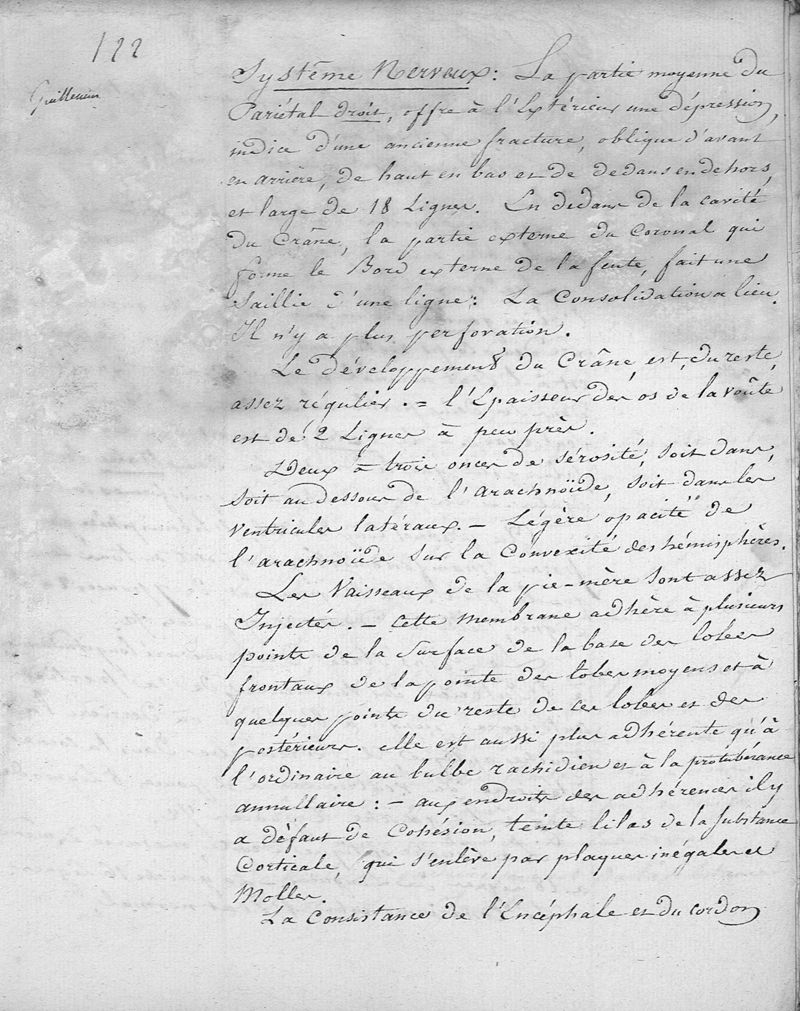 122
Guillemin
Système Nerveux : La partie moyenne du
Pariétal droit, offre à l'Extérieur une dépression,
indice d'une ancienne fracture, oblique d'avant
en arrière, de haut en bas et de dedans en dehors,
et large de 18 Lignes. En dedans de la cavité
du Crâne, la partie externe du Coronal qui
forme le Bord externe de la fente, fait une
Saillie d'une ligne : La Consolidation a lieu.
Il n'y a plus perforation.
Le développement du Crâne, est, du reste,
assez régulier. = l'Epaisseur des os de la voûte
est de 2 Lignes à peu près.
Deux à trois onces de sérosité, soit dans,
soit au dessous de l'arachnoïde, soit dans les
Ventricules latéraux. – Légère opacité de
l'arachnoïde sur la Convexité des hémisphères.
Les Vaisseaux de la pie-mère sont assez
Injectés. – Cette membrane adhère à plusieurs
points de la Surface de la base des lobes
frontaux de la pointe des lobes moyens et à
quelques points du reste de ces lobes et des
postérieurs. elle est aussi plus adhérente qu'à
l'ordinaire au bulbe rachidien et à la protubérance
annullaire : – aux endroits des adhérences il y
a défaut de Cohésion, teinte lilas de la Substance
Corticale, qui s'enlève par plaques inégales et
Molles.
La Consistance de l'Encéphale et du cordon